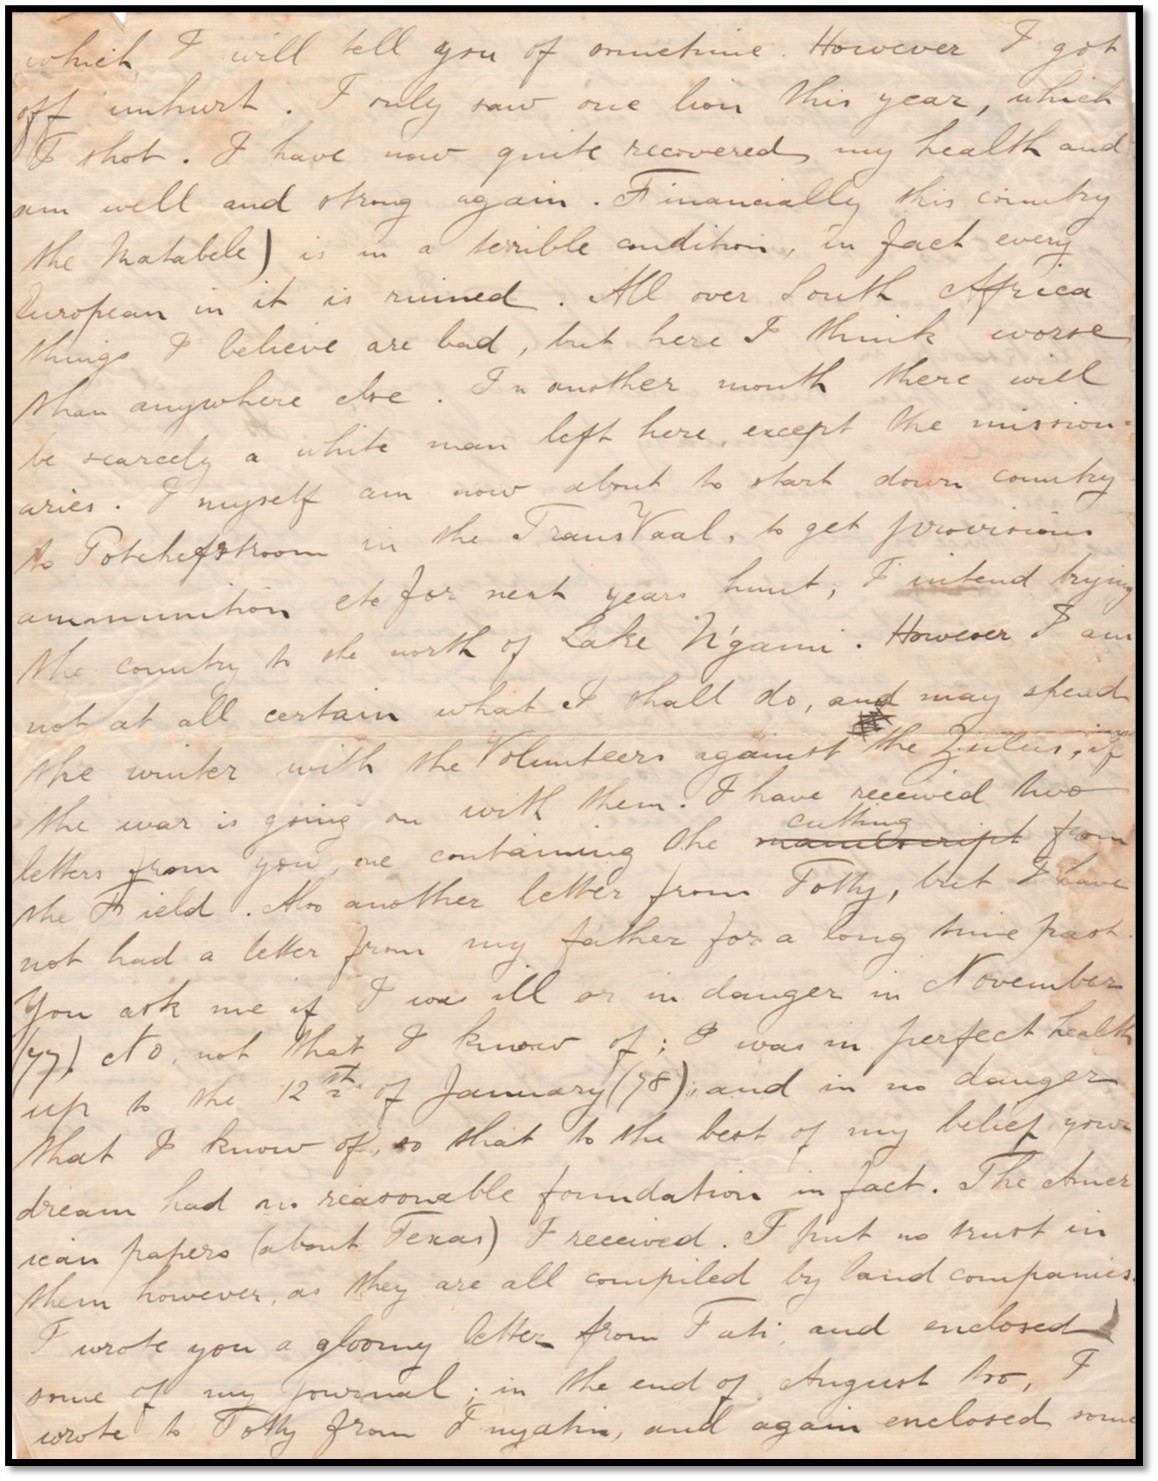 which I will tell you of sometime. However I got
off unhurt. I only saw one lion this year, which
I shot. I have now quite recovered my health and
am well and strong again. Financially this country
the Matabele) is in a terrible condition, in fact every
European in it is ruined. All over South Africa
things I believe are bad, but here I think worse
than anywhere else. In another month there will
be scarcely a white man left here, except the mission-
aries. I myself am now about to start down country
to Potchefstroom in the TransVaal, to get provisions
ammunition etc for next years hunt; I intend trying
the country to the north of Lake N'gami. However I am
not at all certain what I shall do, and may spend
the winter with the Volunteers against the Zulus, if
the war is going on with them. I have received two
letters from you, one containing the manuscript cutting from
the Field. Also another letter from Totty, but I have
not had a letter from my father for a long time past.
You ask me if I was ill or in danger in November
(77) No, not that I know of; I was in perfect health
up to the 12th of January (78), and in no danger
that I know of, so that to the best of my belief your
dream had no reasonable foundation in fact. The Amer
ican papers (about Texas) I received. I put no trust in
them however, as they are all compiled by land companies.
I wrote you a gloomy letter from Tati, and enclosed
some of my journal; in the end of August too, I
wrote to Totty from Inyatin, and again enclosed some